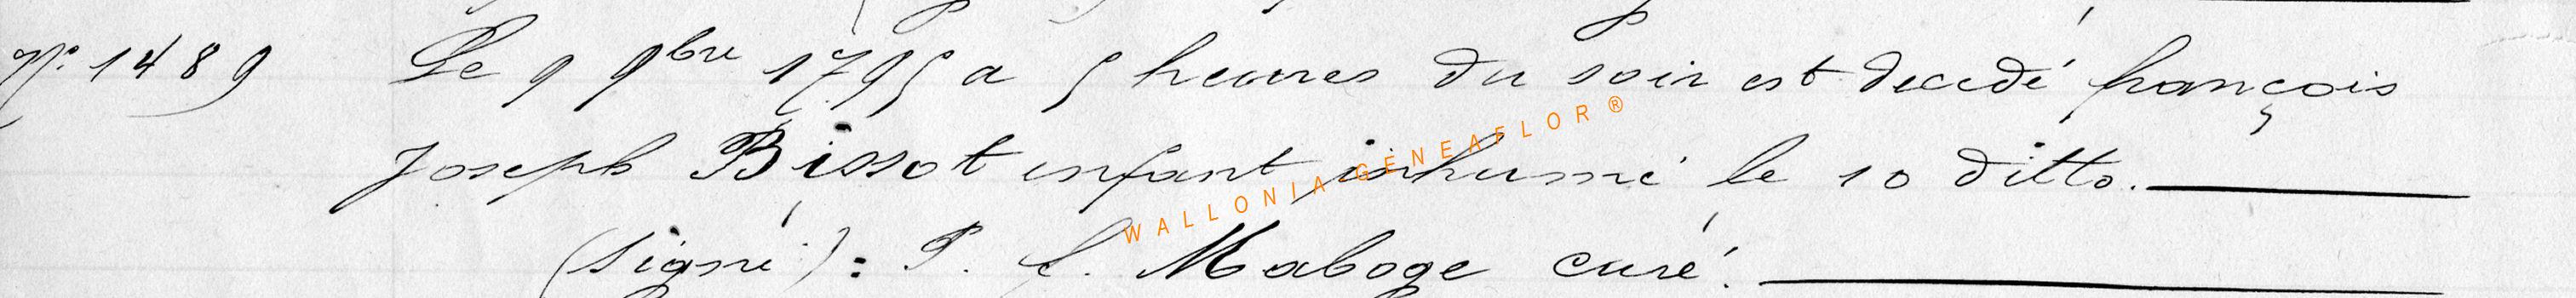 N° 1489 Le 9 9bre 1795 a 5 heures du soir est decedé françois
Joseph Bissot enfant inhumé le 10 ditto.
(signé): P. f. Maboge curé.
WALLONIA GENEAFLOR ®